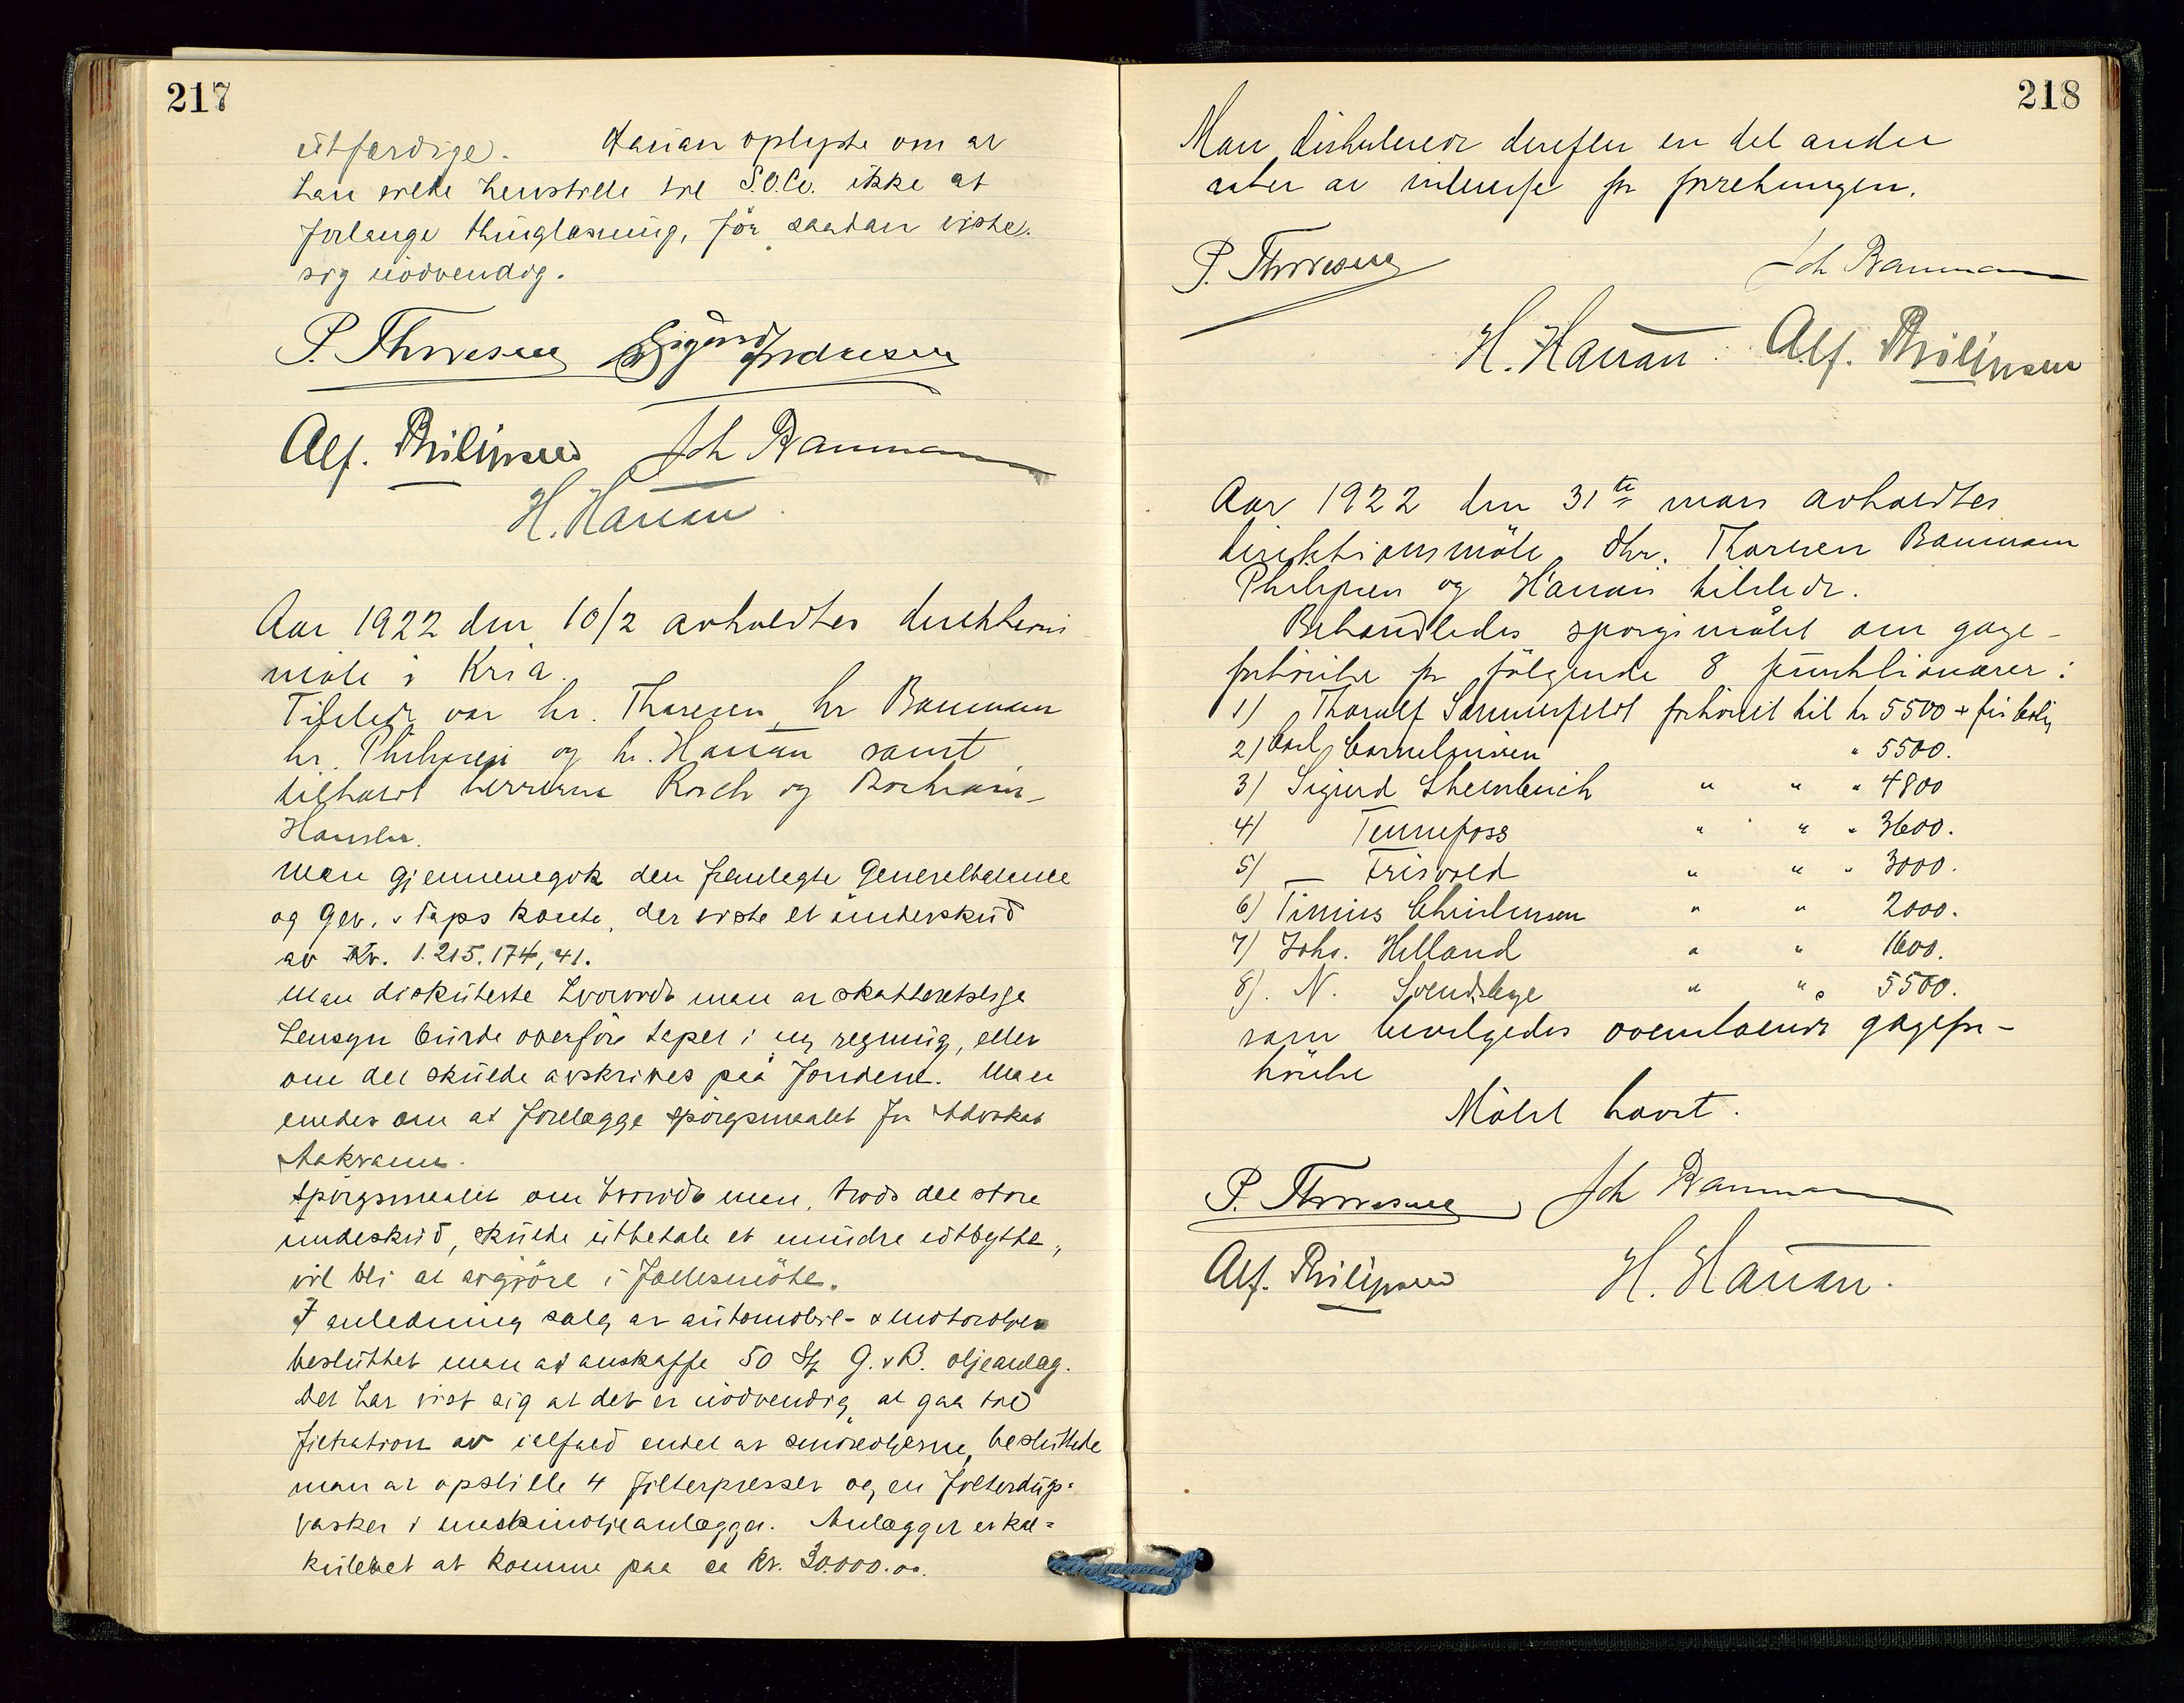 217
utfærdige. Hanan oplyste om at
han vilde henstille til S.O.Co. ikke at
forlange thinglæsning, før saadan viste
sig nödvendig.
P. Thoresen Sigurd Andresen
Alf. Philipsen Joh Baumann
H. Hanan
Aar 1922 den 10/2 avholdtes direktions
möte i Kria.
Tilstede var hr. Thoresen, hr Baumann
hr. Philipsen og hr. Hanan samt
tilkaldt herrerne Rosch og
man gjennemgik den fremlagte Generalbalance
og Gev. & Taps konto, der viste et underskud
av Kr. 1.215.174,41.
Man diskuterte hvorvidt man av skatteretslige
hensyn burde overføre tapet i ny regning, eller
om det skulde avskrives paa fondene. Man
enedes om at forelægge spörgsmaalet for Advokat
Spörgsmaalet om hvorvidt man, trods det store
underskud, skulde utbetale et mindre utbytte,
vil bli at avgjöre i fællesmöte.
I anledning salg av automobil- & motoroljer
besluttet man at anskaffe 50 Stk G.&B. oljeanlæg.
Det har vist sig at det er nödvendig at gaa til
filtration av ialfald endel av smöreoljerne, besluttede
man at opstille 4 filterpresser og en filterdug-
vasker i maskinoljeanlægget. Anlægget er kal-
kulert at komme paa ca Kr. 30.000.00.
218
Man diskuterede derefter en del andre
saker av interesse for forretningen.
P. Thoresen Joh Baumann
H. Hanan Alf. Philipsen
Aar 1922 den 31te mars avholdtes
direktionsmöte. Dhr. Thoresen Baumann
Philipsen og Hanan tilstede.
Behandledes spörgsmålet om gage-
forhöielse for fölgende 8 funktionærer:
1) Thoralf Sommerfeldt forhöiet til kr 5500 + fri bolig
2) Carl Corneliussen " 5500.
3) Sigurd " " " 4800
4) Tennefoss " " " 3600.
5) — Frisvold " " " 3000.
6) Tinius Christensen " " 2000.
7) Johs. Helland " " 1600.
8). N. " " 5500.
som bevilgedes ovenstaaende gagefor-
höielse
Mötet hævet.
P. Thoresen Joh Baumann
Alf. Philipsen H. Hanan.